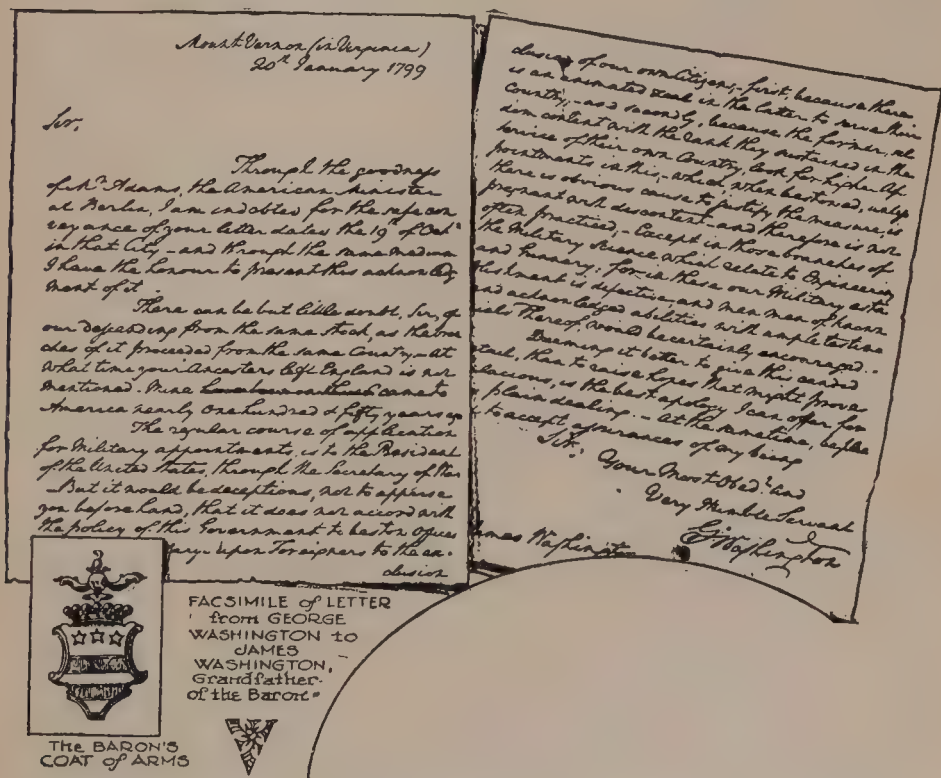 Mount Vernon (in Virginia)
20th January 1799
Sir,
Through the goodness
of Mr. Adams, the American Minister
at Berlin, I am indebted for the safe con
veyance of your letter dated the 19th of Octr
in that City – and through the same medium
I have the honour to present this acknowledg
ment of it.
There can be but little doubt, Sir, of
our descending from the same Stock, as the bran
ches of it proceeded from the same Country. – At
what time your Ancestors left England is not
mentioned. Mine came to
America nearly one hundred & fifty years ago
The regular course of application
for Military appointments, is to the President
of the United States, through the Secretary of War
– But it would be deceptious, not to apprise
you before hand, that it does not accord with
the policy of this Government to bestow Offices
upon Foreigners to the ex-
clusion
clusion of our own Citizens, – first, because there
is an animated zeal in the latter to serve their
Country, – and secondly, because the former, sel
dom content with the rank they sustained in the
service of their own Country, look for higher Ap
pointments in this, – which, when bestowed, unless
there is obvious cause to justify the measure, is
pregnant with discontent – and therefore is not
often practiced, – Except in those branches of
the Military Science which relate to Engineering
and Gunnery; for in these our Military esta
blishment is defective, and men of known
and acknowledged abilities, with ample testimo
nials thereof, would be certainly encouraged. –
Deeming it better to give this candid
detail, than to raise hopes that might prove
fallacious, is the best apology I can offer for
plain dealing. – At the same time, be pleased
to accept assurances of my being
Sir,
Your Most Obedt. and
Very Humble Servant
Go: Washington
James Washington
FACSIMILE of LETTER
from GEORGE
WASHINGTON to
JAMES
WASHINGTON,
Grandfather
of the Baron.
The BARON'S
COAT of ARMS